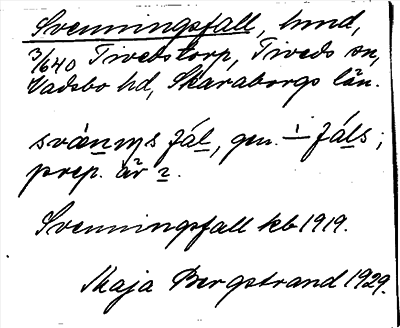 Svenningsfall, hmd,
3/640 Tivedstorp, Tiveds sn,
Vadsbo hd, Skaraborgs län.
svänıŋs fal, gen. ÷ fáls;
prep. är
Svenningsfall kb 1919.
Maja Bergstrand 1929.